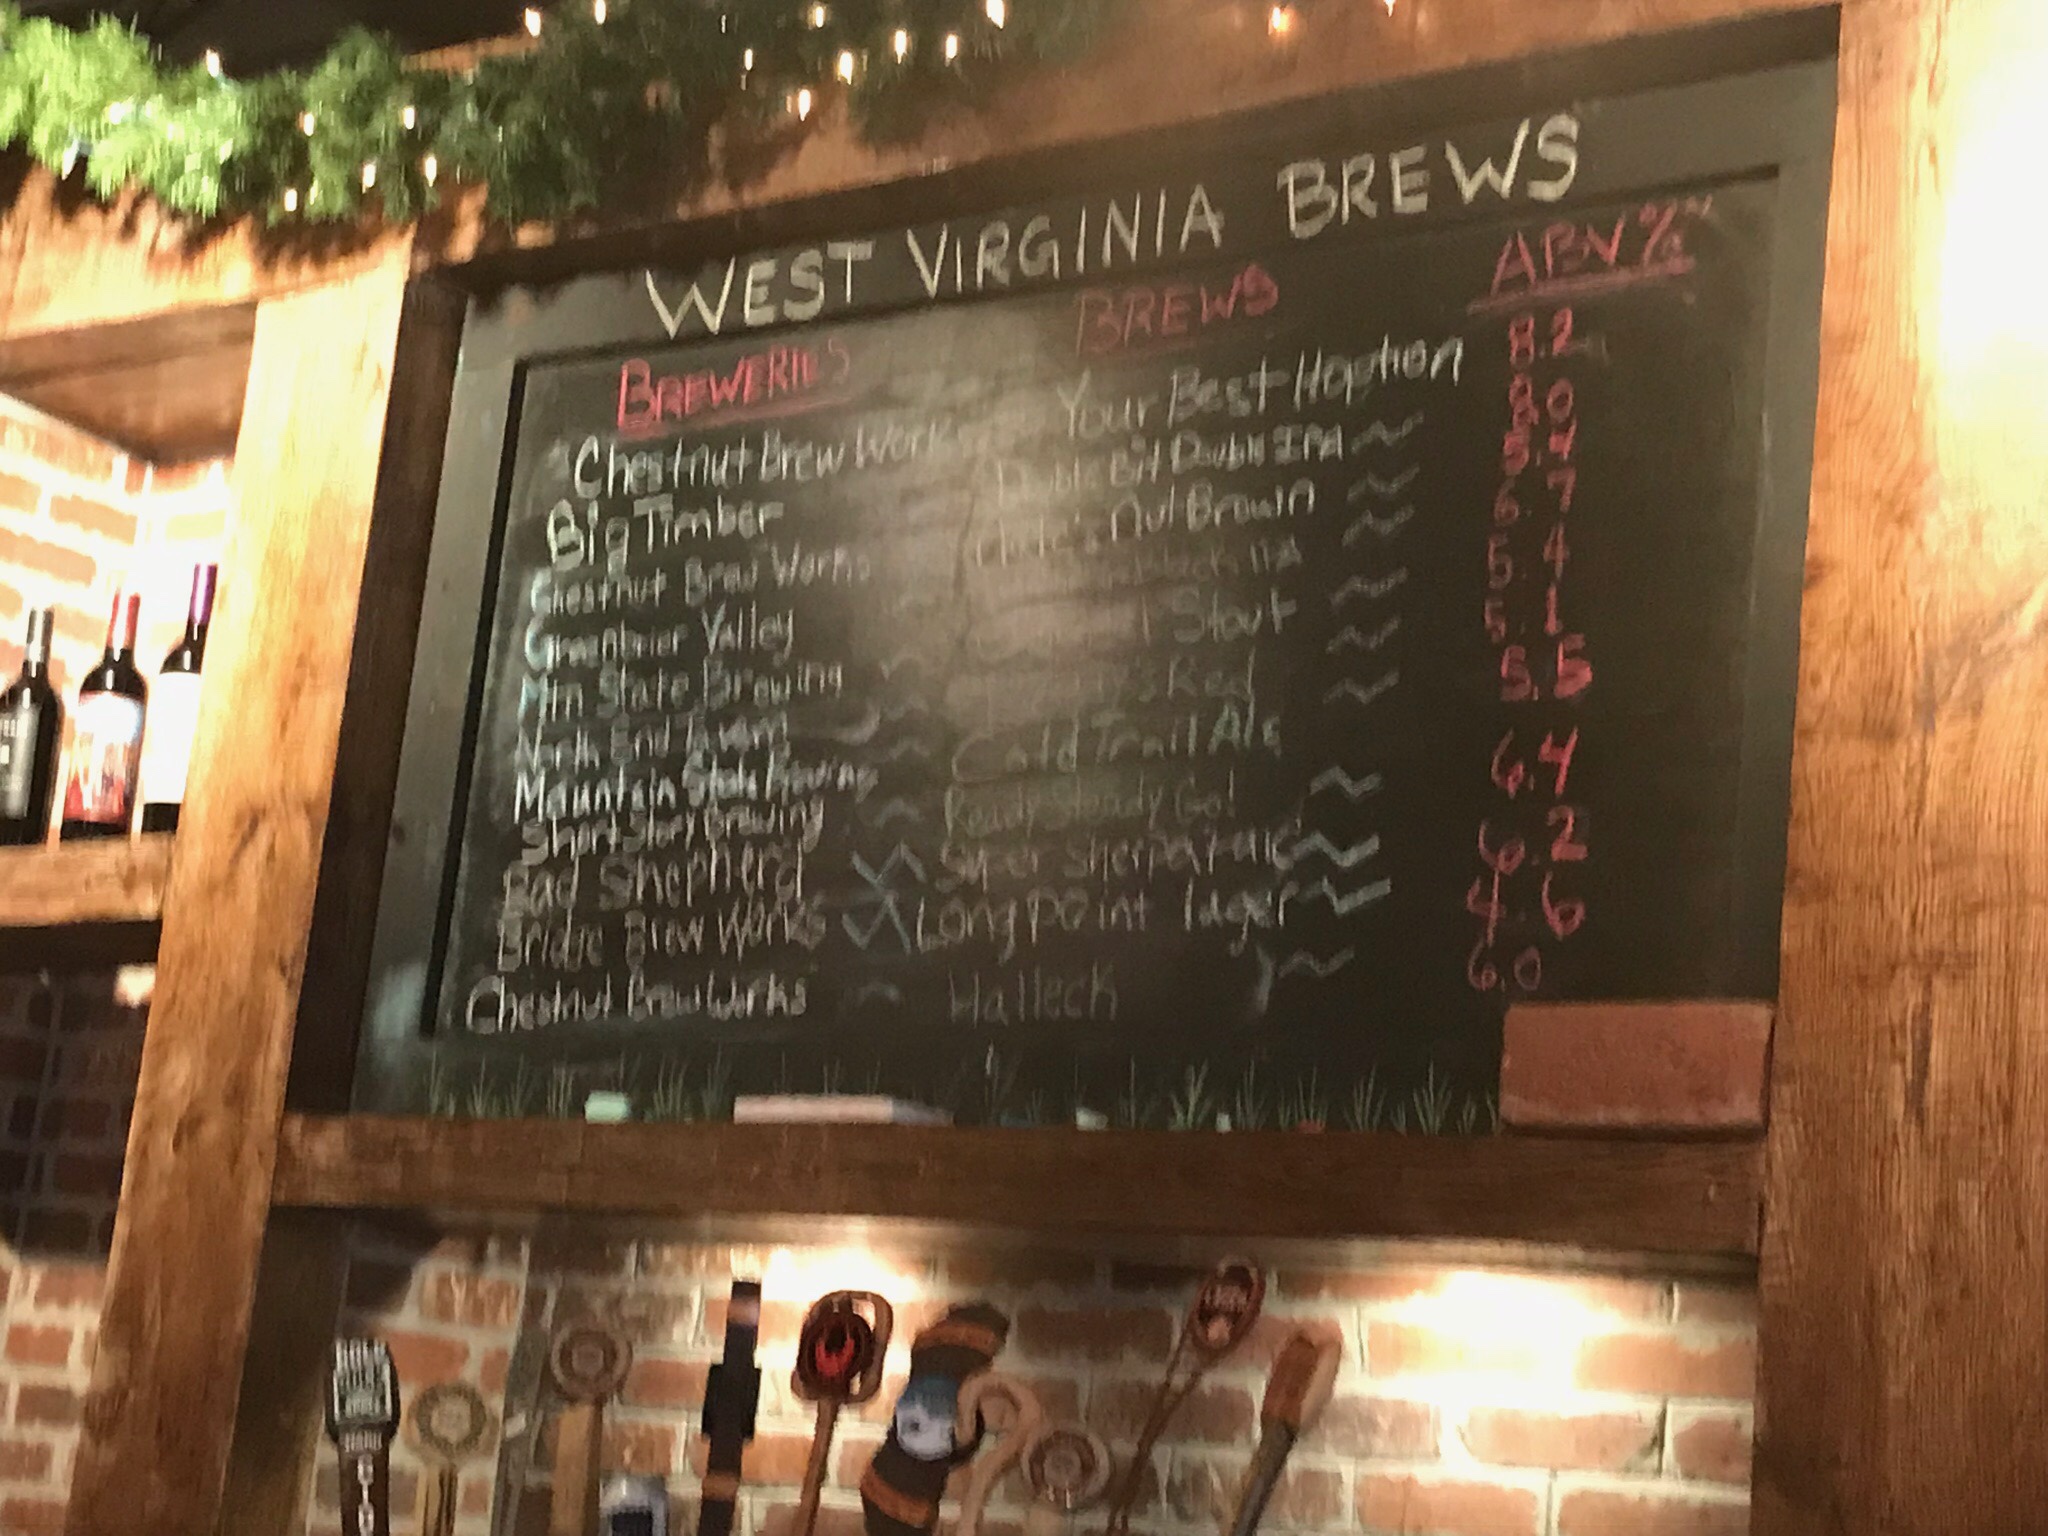 WEST VIRGINIA BREWS
BREWERIES BREWS ABV %
Chestnut Brew Works Your Best Hoption 8.2
Big Timber Double Bit Double IPA 8.0
Chestnut Brew Works Nut Brown 5.4
Greenbrier Valley 6.7
Mtn State Brewing Stout 5.4
North End Red 5.1
Mountain State Brewing Cold Trail Ale 5.5
Short Story Brewing Ready Steady Go! 6.4
Bad Shepherd Super 6.2
Bridge Brew Works Long point lager 4.6
Chestnut Brew Works Halleck 6.0